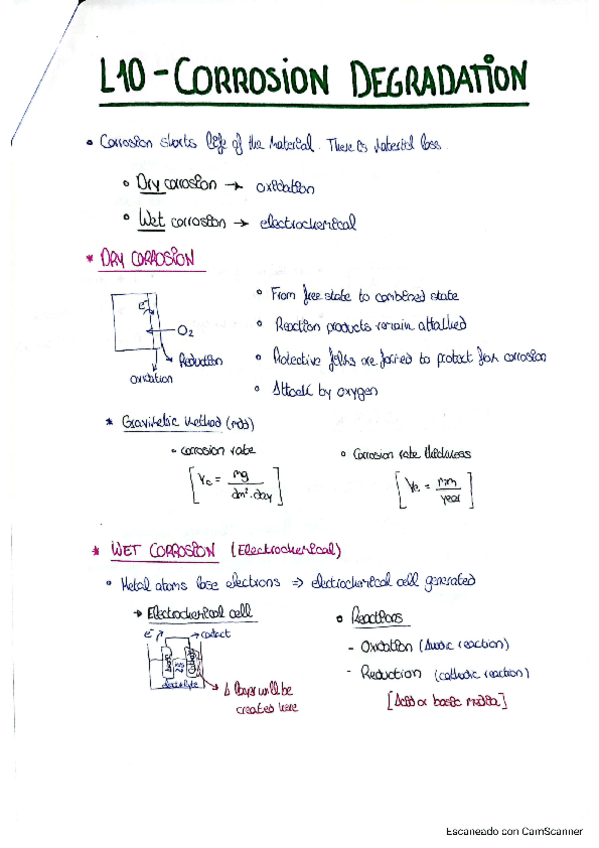 L10 - CORROSION DEGRADATION
• Corrosion shorts life of the Material. There is Material loss.
• Dry corrosion → oxidation
• Wet corrosion → electrochemical
* DRY CORROSION
e-
O2
Reduction
oxidation
• From free state to combined state
• Reaction products remain attached
• Protective films are formed to protect from corrosion
• Attack by oxygen
* Gravimetric method (mdd)
- corrosion rate
[Vc = mg / dm² · day]
• Corrosion rate thickness
[Vc = mm / year]
* WET CORROSION (Electrochemical)
• Metal atoms lose electrons ⇒ electrochemical cell generated
→ Electrochemical cell
e-
→ contact
electrolyte
Δ layer will be
created here
• Reactions
- Oxidation (Anodic reaction)
- Reduction (cathodic reaction)
[Acid or basic media]
Escaneado con CamScanner